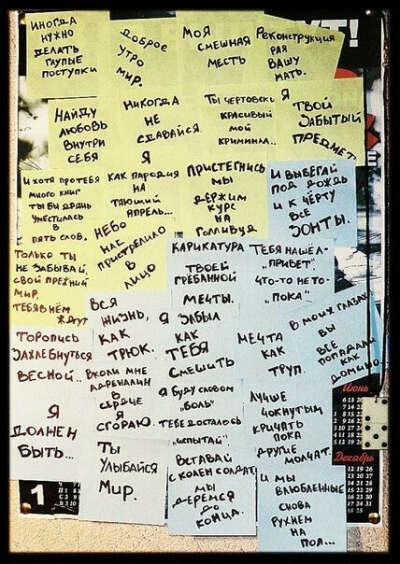 ИНОГДА
НУЖНО
ДЕЛАТЬ
ГЛУПЫЕ
ПОСТУПКИ
ДОБРОЕ
УТРО
МИР.
МОЯ
СМЕШНАЯ
МЕСТЬ
РЕКОНСТРУКЦИЯ
РАЯ
ВАШУ
МАТЬ.
УТ!
НАЙДУ
ЛЮБОВЬ
ВНУТРИ
СЕБЯ
НИКОГДА
НЕ
СДАВАЙСЯ
ТЫ ЧЕРТОВСКИ
КРАСИВЫЙ
МОЙ
КРИМИНАЛ..
Я
ТВОЙ
ЗАБЫТЫЙ
ПРЕДМЕТ
И ХОТЯ ПРО ТЕБЯ
МНОГО КНИГ
ТЫ БЫ ДРЯНЬ
УМЕСТИЛАСЬ
В
ПЯТЬ СЛОВ.
Я
КАК ПАРОДИЯ
НА
ТАЮЩИЙ
АПРЕЛЬ...
ПРИСТЕГНИСЬ
МЫ
ДЕРЖИМ
КУРС
НА
ГОЛЛИВУД
И ВЫБЕГАЙ
ПОД ДОЖДЬ
И К ЧЁРТУ
ВСЕ
ЗОНТЫ.
ТОЛЬКО ТЫ
НЕ ЗАБЫВАЙ
СВОЙ ПРЕЖНИЙ
МИР.
ТЕБЯ В НЁМ
ЖДУТ
НЕБО
НАС
ПРИСТРЕЛИЛО
В
ЛИЦО
КАРИКАТУРА
ТВОЕЙ
ГРЕБАННОЙ
МЕЧТЫ.
ТЕБЯ НАШЁЛ-
„ПРИВЕТ"
ЧТО-ТО НЕ ТО-
„ПОКА"
ТОРОПИСЬ
ЗАХЛЕБНУТЬСЯ
ВЕСНОЙ..
ВСЯ
ЖИЗНЬ,
КАК
ТРЮК.
Я ЗАБЫЛА
КАК
ТЕБЯ
СМЕШИТЬ
МЕЧТА
КАК
ТРУП.
В МОИХ ГЛАЗАХ
ВЫ
ВСЕ
ПОПАДАЛИ
КАК
ДОМИНО.
Я
ДОЛЖЕН
БЫТЬ...
ВКОЛИ МНЕ
АДРЕНАЛИН
В
СЕРДЦЕ
Я
СГОРАЮ.
Я БУДУ СЛОВОМ
„БОЛЬ"
ТЕБЕ ДОСТАЛОСЬ
„ИСПЫТАЙ"
ЛУЧШЕ
ЧОКНУТЫМ
КРИЧАТЬ
ПОКА
ДРУГИЕ
МОЛЧАТ.
ТЫ
УЛЫБАЙСЯ
МИР.
ВСТАВАЙ
С КОЛЕН СОЛДАТ
МЫ
ДЕРЕМСЯ
ДО
КОНЦА.
И МЫ
ВЛЮБЛЕННЫЕ
СНОВА
РУХНЕМ
НА
ПОЛ...
Июнь
Декабрь
1